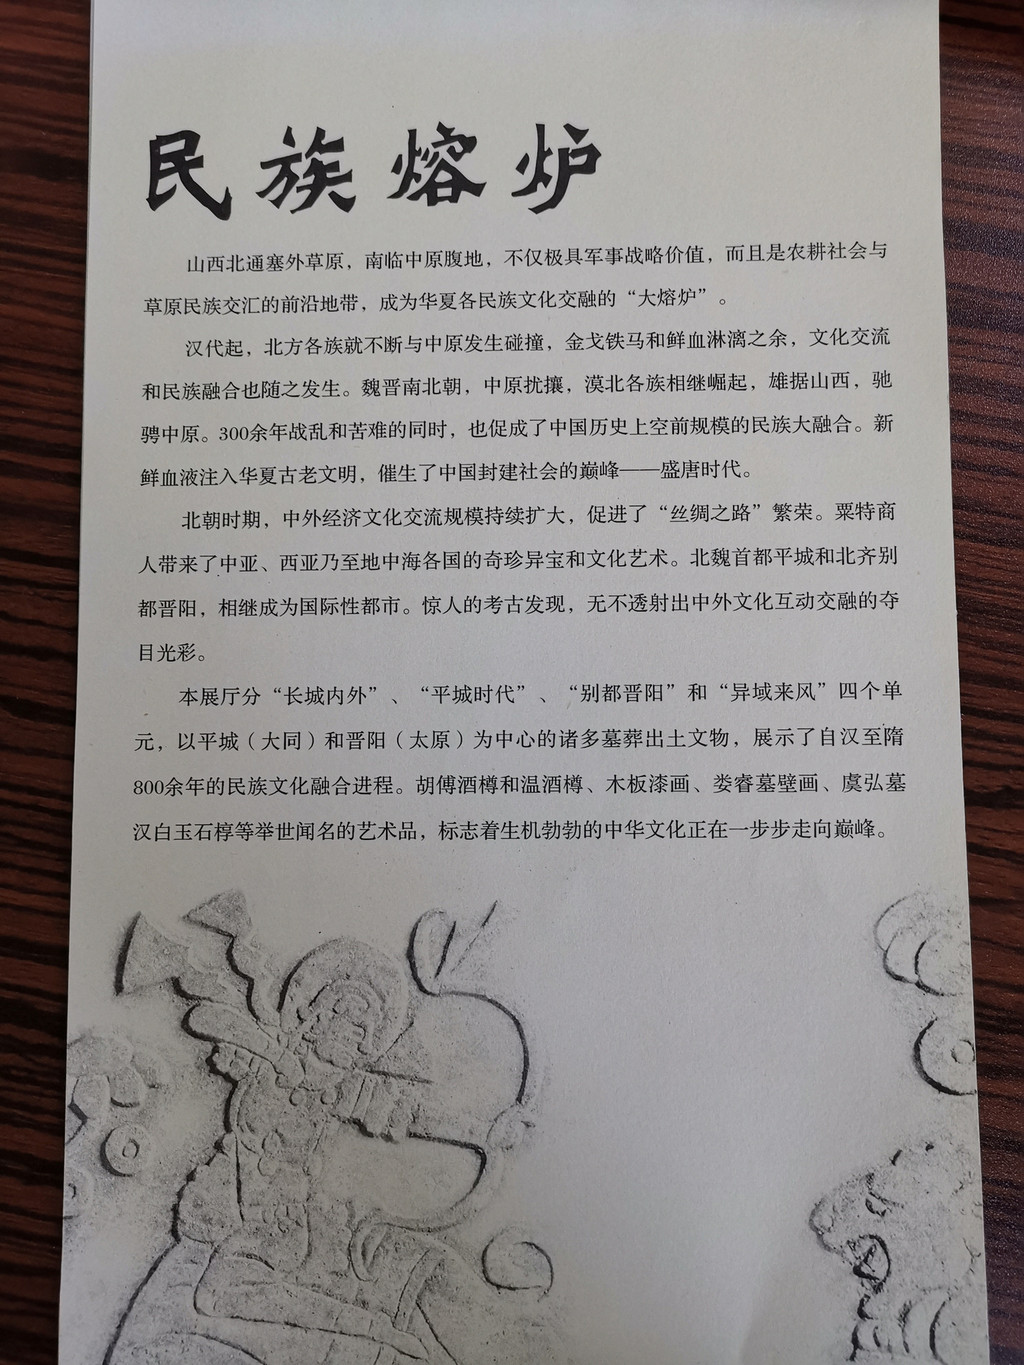 民族熔炉
山西北通塞外草原，南临中原腹地，不仅极具军事战略价值，而且是农耕社会与
草原民族交汇的前沿地带，成为华夏各民族文化交融的“大熔炉”。
汉代起，北方各族就不断与中原发生碰撞，金戈铁马和鲜血淋漓之余，文化交流
和民族融合也随之发生。魏晋南北朝，中原扰攘，漠北各族相继崛起，雄据山西，驰
骋中原。300余年战乱和苦难的同时，也促成了中国历史上空前规模的民族大融合。新
鲜血液注入华夏古老文明，催生了中国封建社会的巅峰——盛唐时代。
北朝时期，中外经济文化交流规模持续扩大，促进了“丝绸之路”繁荣。粟特商
人带来了中亚、西亚乃至地中海各国的奇珍异宝和文化艺术。北魏首都平城和北齐别
都晋阳，相继成为国际性都市。惊人的考古发现，无不透射出中外文化互动交融的夺
目光彩。
本展厅分“长城内外”、“平城时代”、“别都晋阳”和“异域来风”四个单
元，以平城（大同）和晋阳（太原）为中心的诸多墓葬出土文物，展示了自汉至隋
800余年的民族文化融合进程。胡傅酒樽和温酒樽、木板漆画、娄睿墓壁画、虞弘墓
汉白玉石椁等举世闻名的艺术品，标志着生机勃勃的中华文化正在一步步走向巅峰。